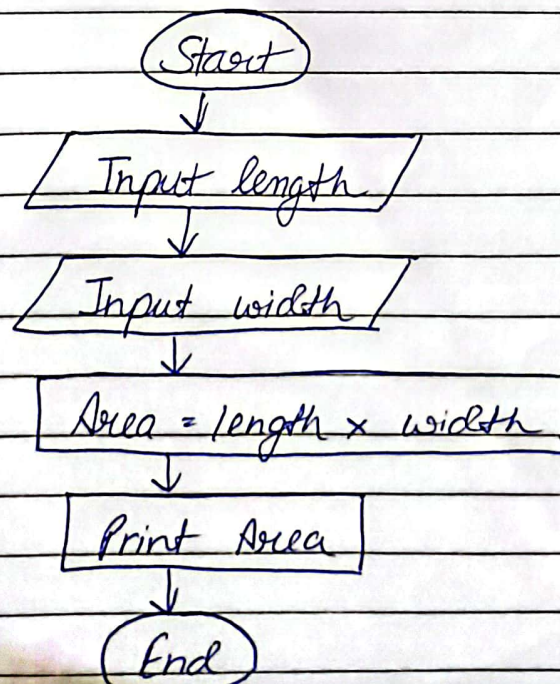 Start
Input length
Input width
Area = length × width
Print Area
End